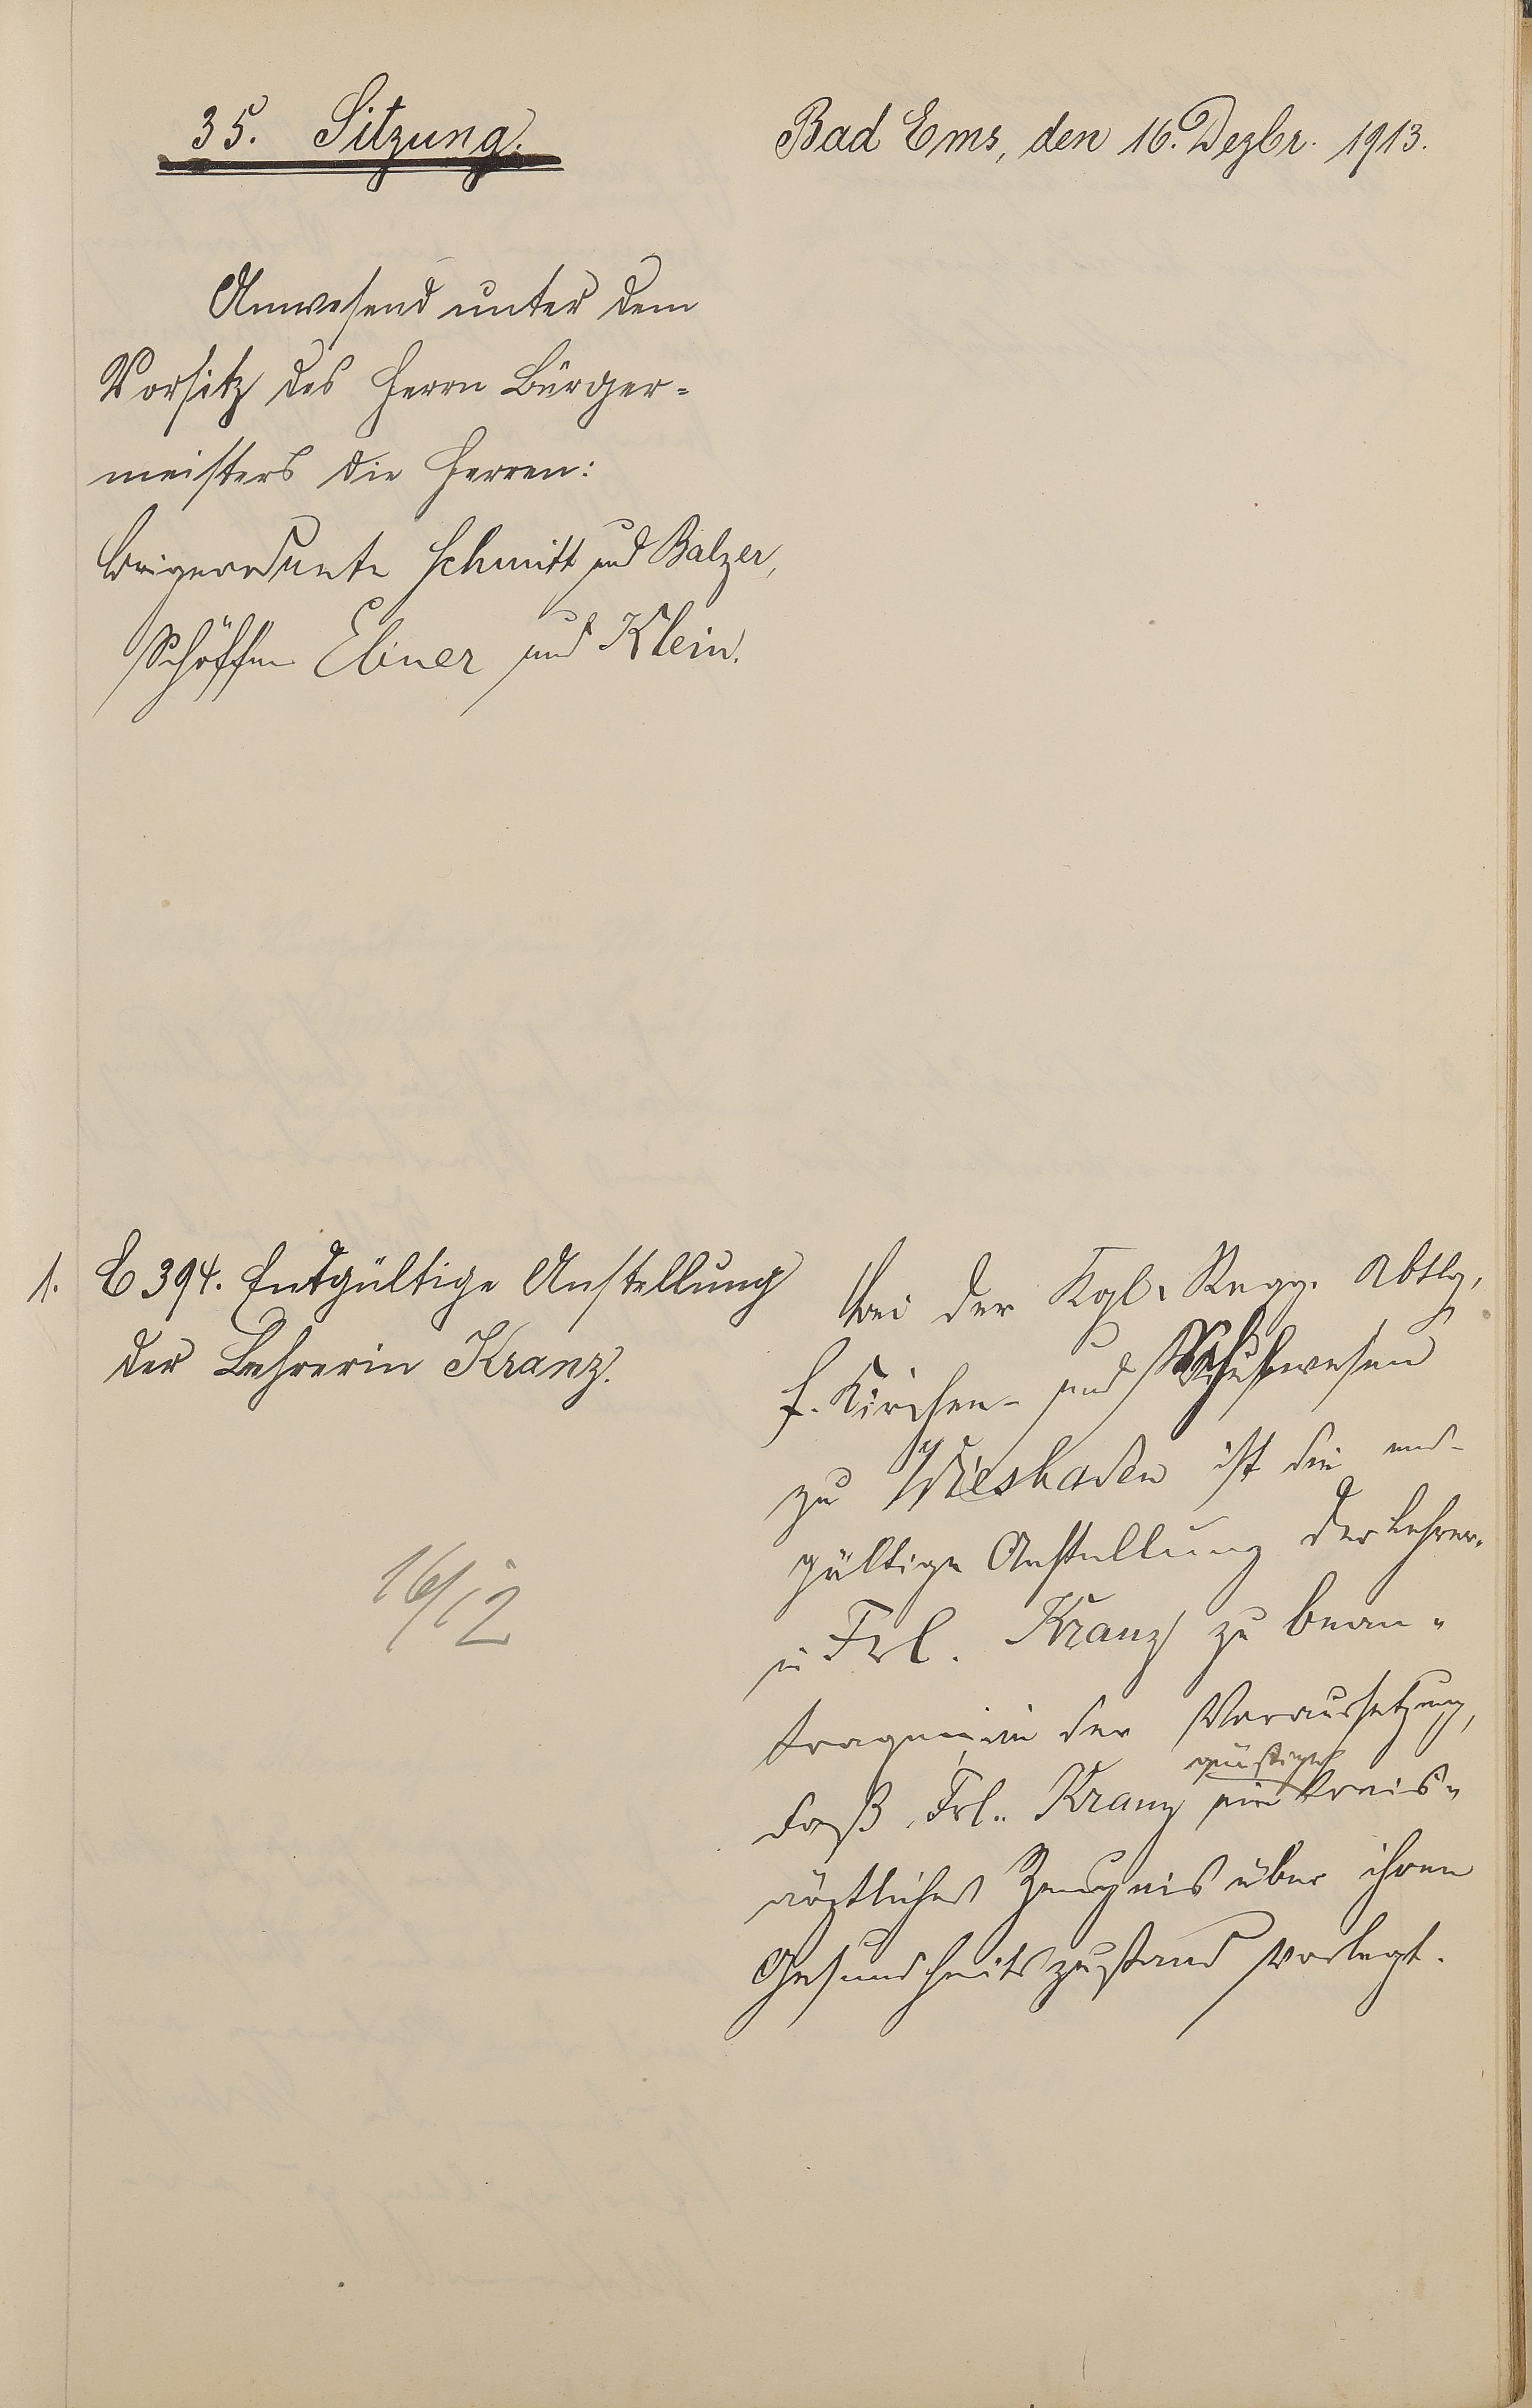 35. Sitzung.
Bad Ems, den 16. Dezbr. 1913.
Anwesend unter dem
Vorsitz des Herrn Bürger=
meisters die Herren:
Beigeordnete Schmitt und Balzer,
Schöffen Ebner und Klein.
1. C 394. Endgültige Anstellung
der Lehrerin Kranz.
16/12
Bei der Kgl. Regg. Abtlg.
f. Kirchen- und Schulwesen
zu Wiesbaden ist die end-
gültige Anstellung der Lehrer-
in Frl. Kranz zu bean-
tragen, in der Voraussetzung,
daß Frl. Kranz ein günstiges kreis-
ärztliches Zeugnis über ihren
Gesundheitszustand vorlegt.